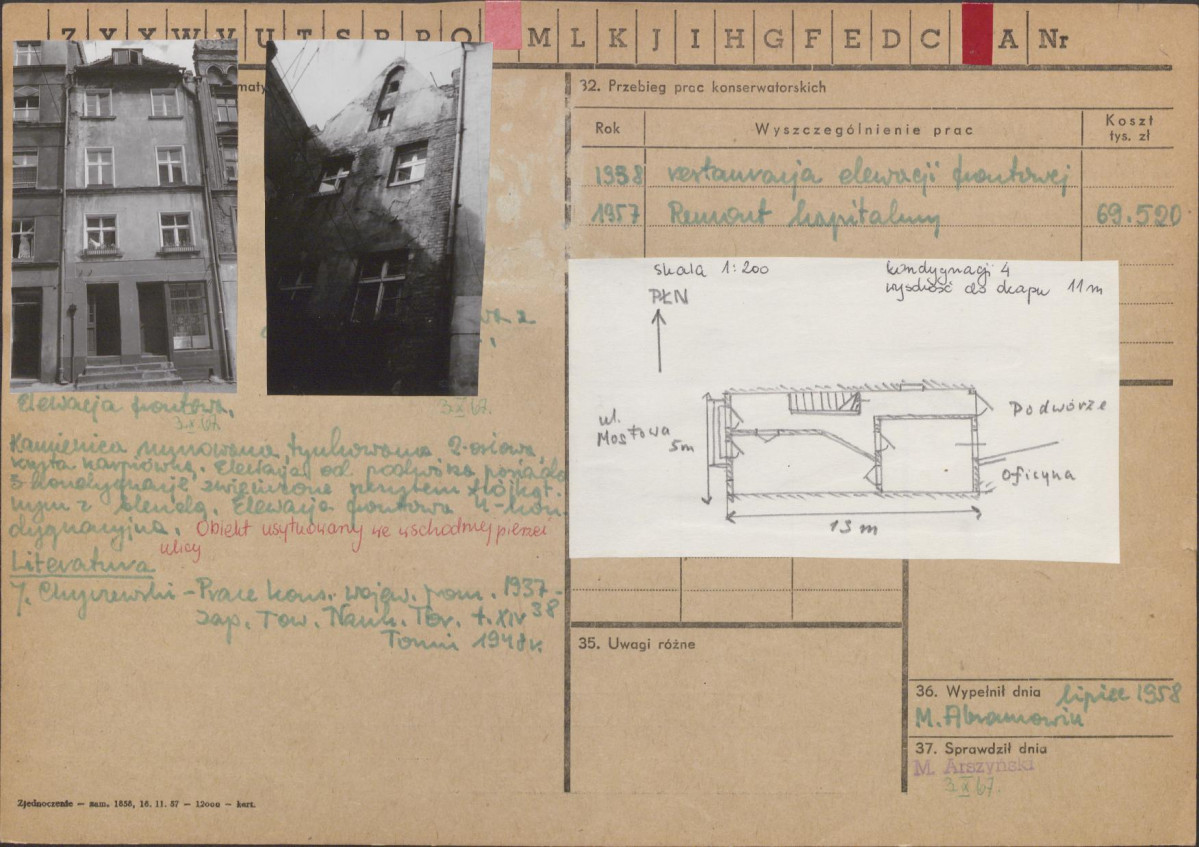 Z Y X W V U T S R P O M L K J I H G F E D C A Nr
32. Przebieg prac konserwatorskich
Rok Wyszczególnienie prac Koszt tys. zł
1938 restauracja elewacji frontowej
1957 Remont kapitalny 69.520
skala 1:200
kondygnacji 4
wysokość do okapu 11 m
PŁN
ul. Mostowa
5 m
Podwórze
Oficyna
13 m
Elewacja frontowa.
3.X.67.
3.X.67.
Kamienica murowana, tynkowana 2-osiowa,
kryta karpiówką. Elewacja od podwórka posiada
3 kondygnacje zwieńczone szczytem trójkąt.
nym z blendą. Elewacja frontowa 4-kon-
dygnacyjna. Obiekt usytuowany we wschodniej pierzei
ulicy
Literatura
J. Chyczewski - Prace kons. wojew. pom. 1937-
38
Zap. Tow. Nauk. Tor. t. XIV
Toruń 1948 r.
35. Uwagi różne
36. Wypełnił dnia lipiec 1958
M. Abramowicz
37. Sprawdził dnia
M. Arszyński
3.X.67.
Zjednoczenie — zam. 1858, 16. 11. 57 — 12000 — kart.